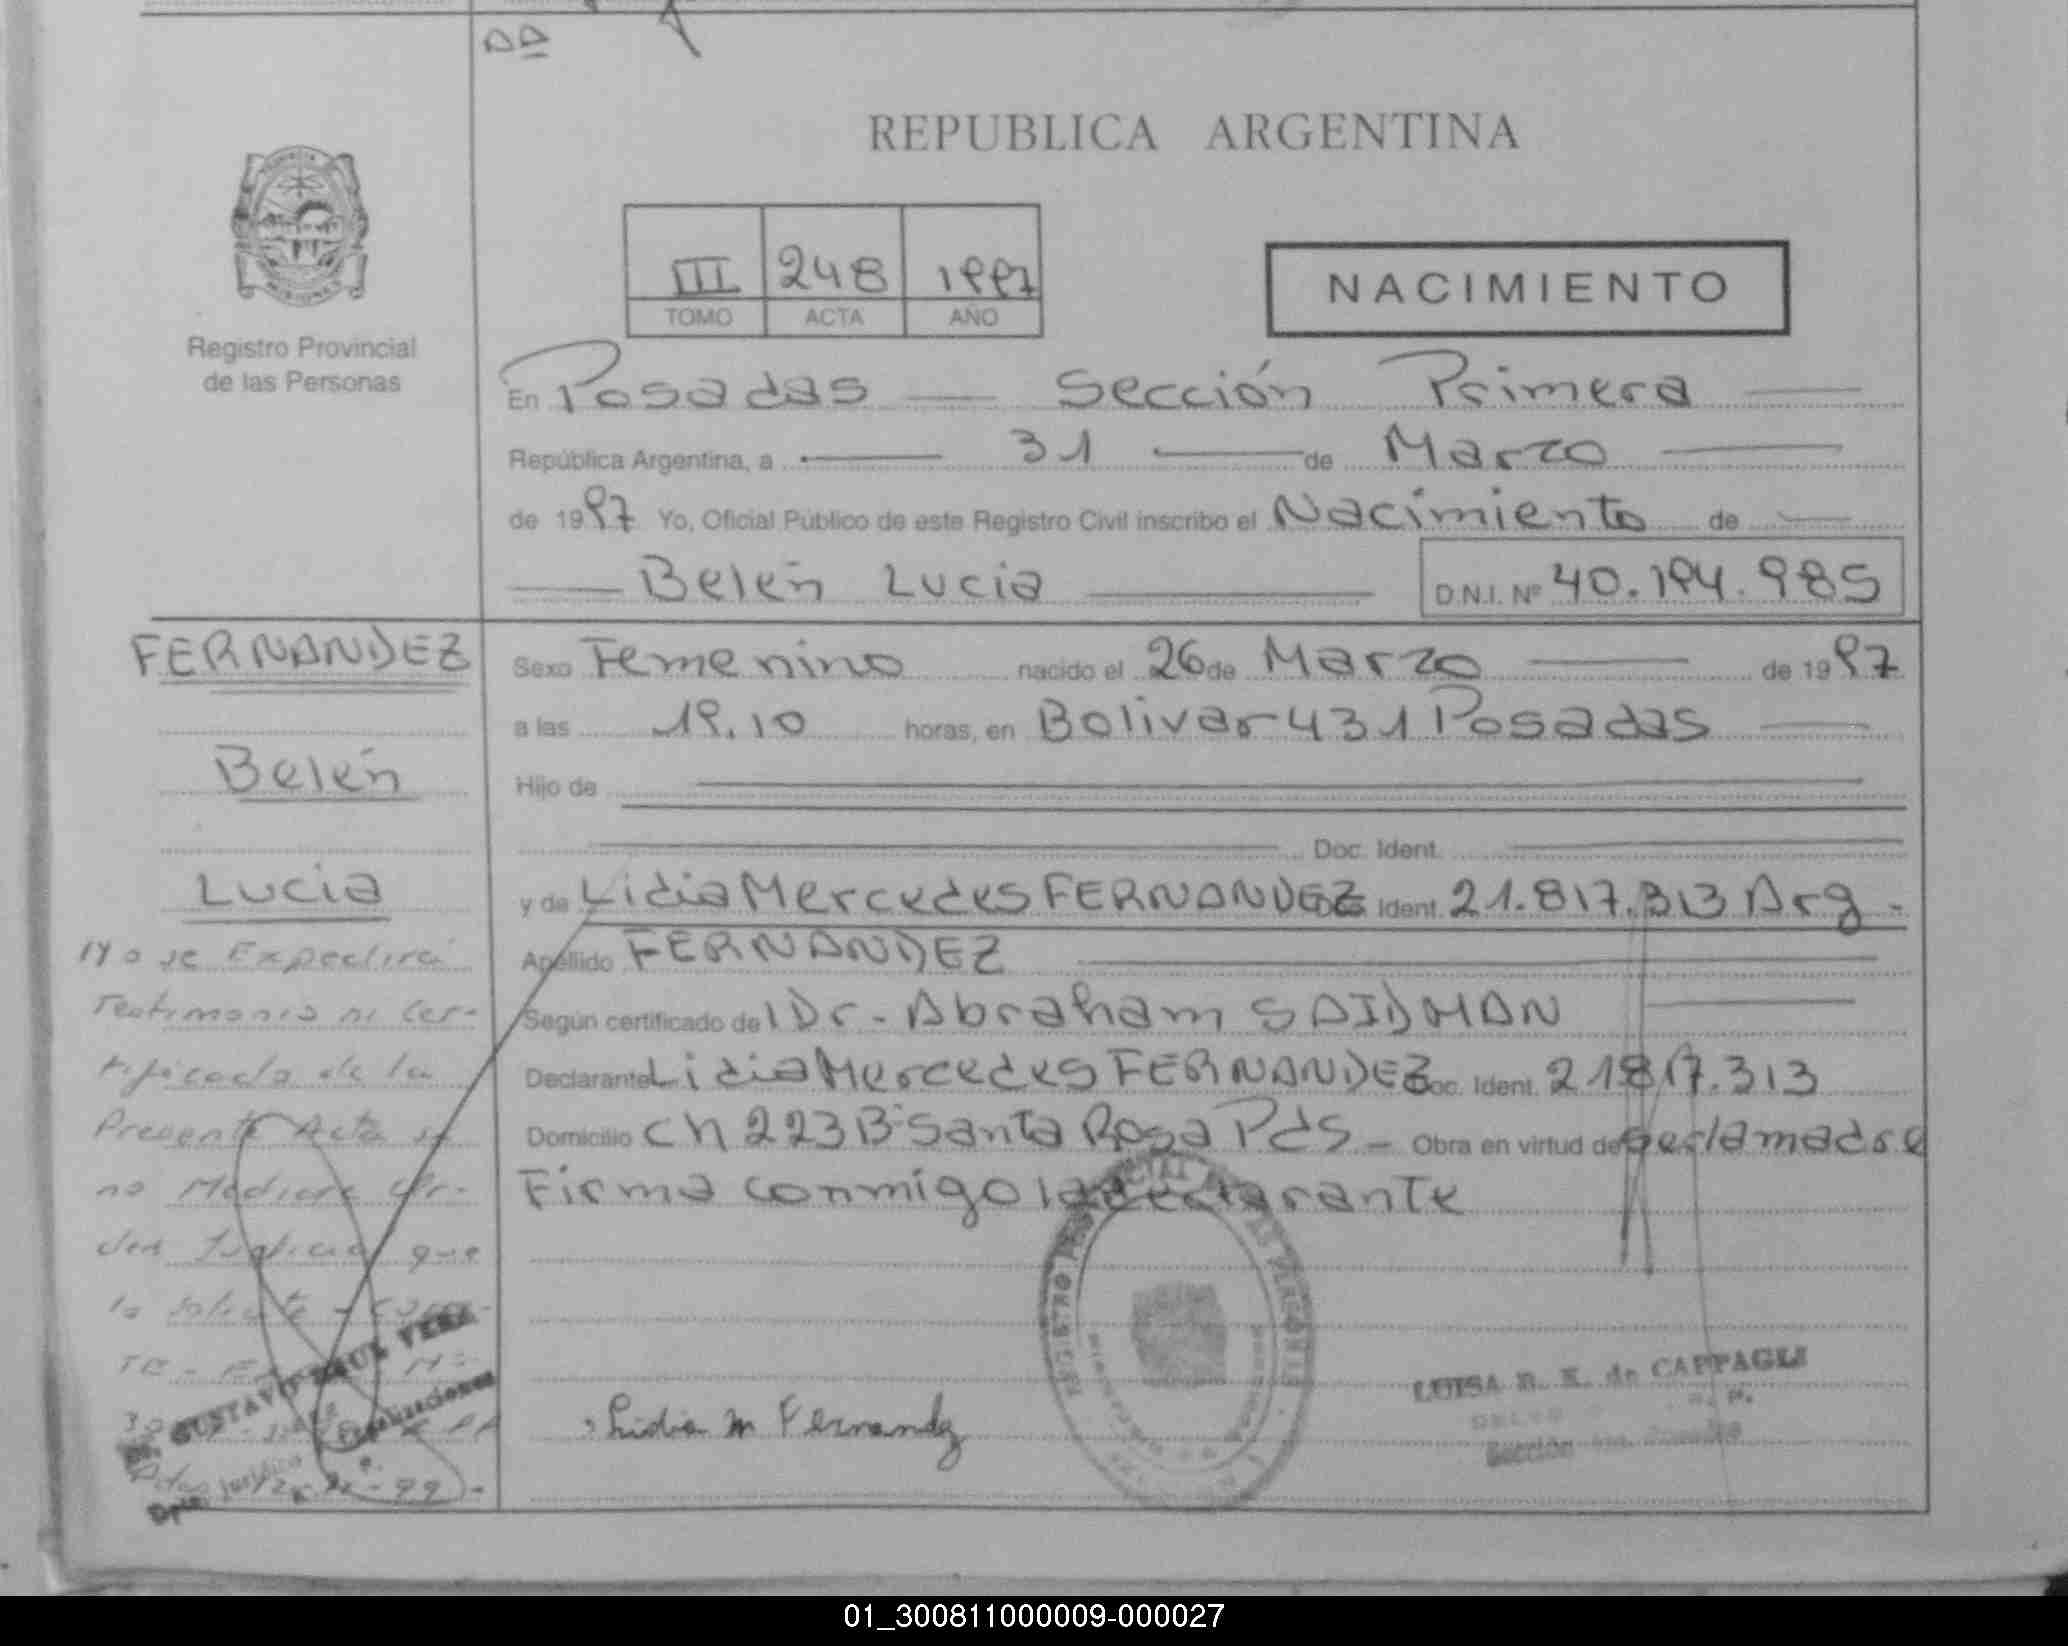 DD
REPUBLICA ARGENTINA
MISIONES
Registro Provincial
de las Personas
III 248 1997
TOMO ACTA AÑO
NACIMIENTO
En Posadas Sección Primera
República Argentina, a 31 de Marzo
de 1997 Yo, Oficial Público de este Registro Civil inscribo el Nacimiento de
Belén Lucia D.N.I. Nº 40.194.985
FERNANDEZ
Belén
Lucia
Sexo Femenino nacido el 26 de Marzo de 1997
a las 19.10 horas, en Bolivar 431 Posadas
Hijo de
Doc. Ident.
y de Lidia Mercedes FERNANDEZ Doc. Ident. 21.817.313 Arg.
Apellido FERNANDEZ
Según certificado del Dr. Abraham SAIDMAN
Declarante Lidia Mercedes FERNANDEZ Doc. Ident. 21817.313
Domicilio Ch 223 Bº Santa Rosa Pds Obra en virtud de ser la madre
Firma conmigo la declarante
No se Expedirá
Testimonio ni Cer-
tificado de la
Presente Acta si
no Mediare Or-
den Judicial que
lo solicite
GUSTAVO VERA
Lidia M Fernandez
LUISA R. K. de CAPPAGLI
Sección
01_300811000009-000027